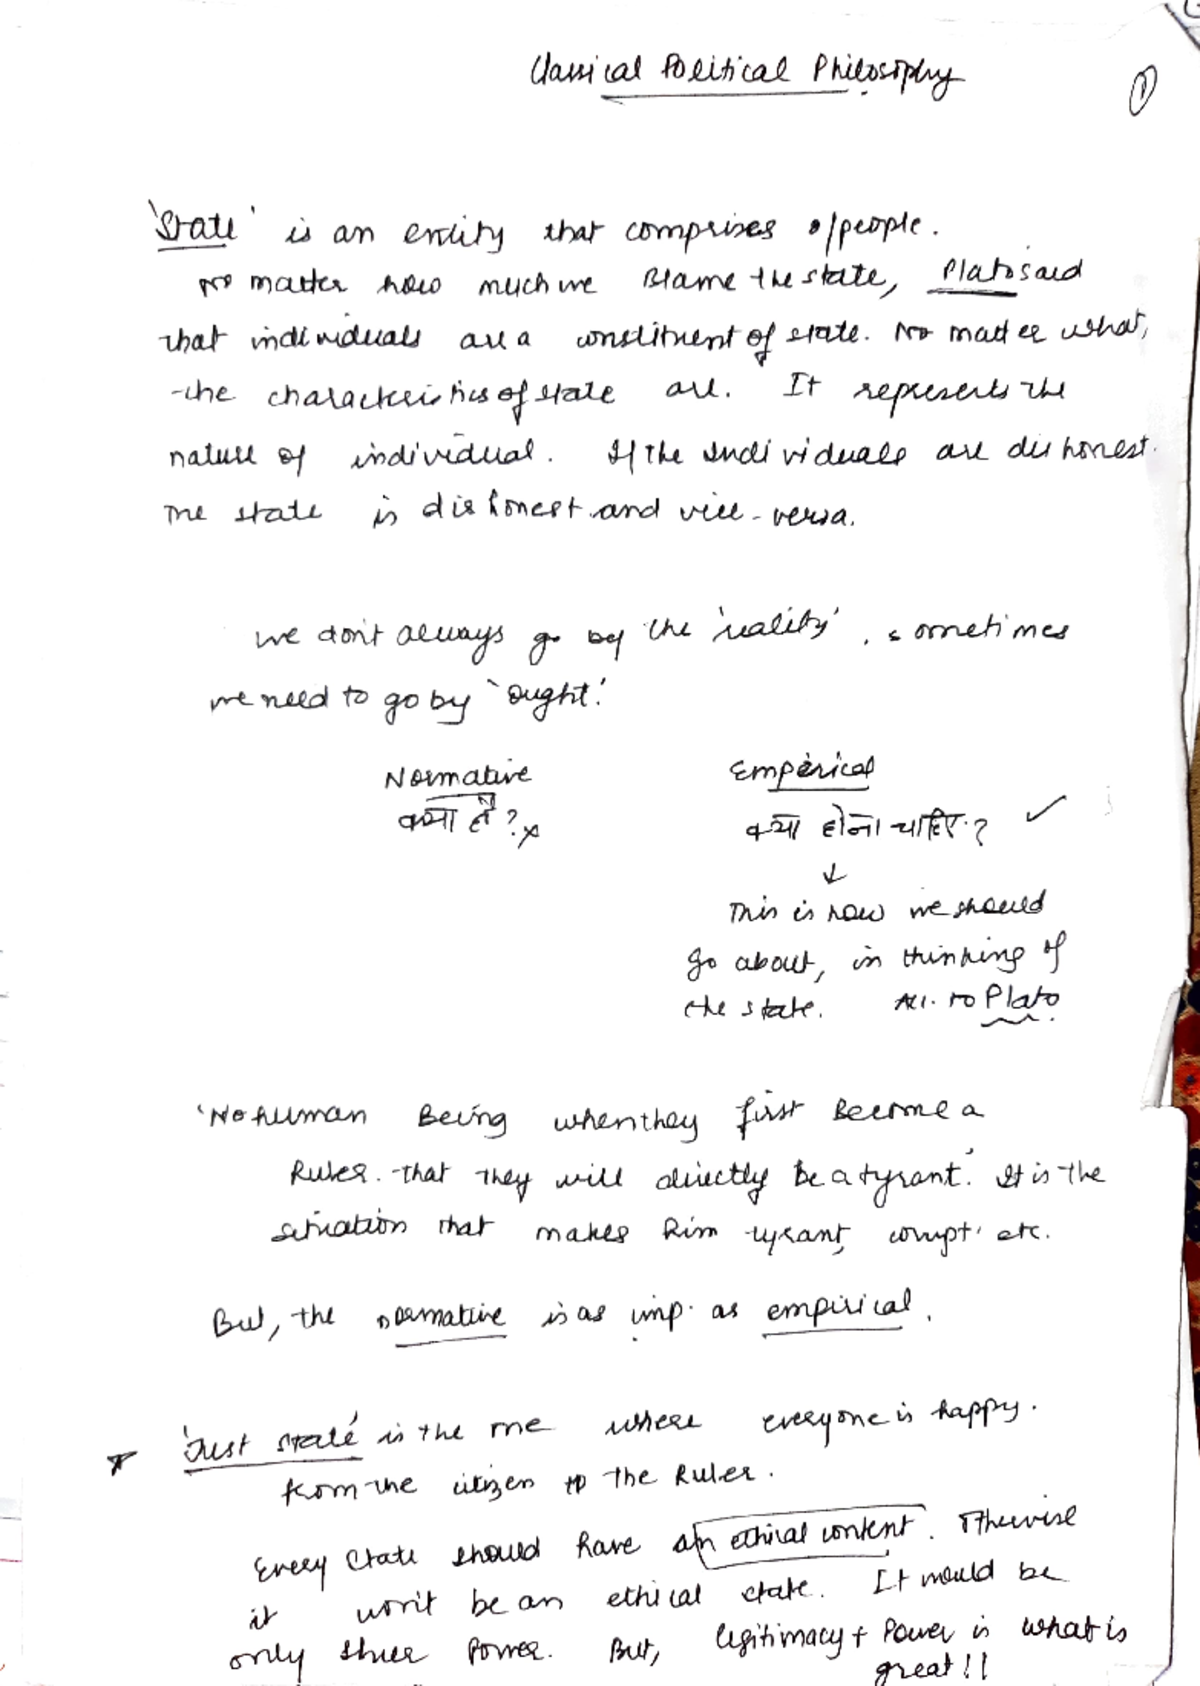 Classical Political Philosophy
1
'State' is an entity that comprises o/people.
No matter how much we Blame the state, Plato said
that individuals are a constituent of state. No matter what,
the characteristics of state are. It represents the
nature of individual. If the Individuals are dishonest.
The state is dishonest and vice-versa.
We don't always go by the 'reality', sometimes
we need to go by 'ought'.
Normative Empirical
क्या है? x क्या होना चाहिए? ✓
↓
This is how we should
go about, in thinking of
the state. Acc. to Plato.
'No human Being when they first Become a
Ruler. that they will directly be a tyrant.' It is the
situation that makes him tyrant, corrupt etc.
But, the normative is as imp. as empirical.
* 'Just state' is the one where everyone is happy.
from the citizen to the Ruler.
Every State should have an ethical content. Otherwise
it won't be an ethical state. It would be
only sheer Power. But, legitimacy + Power is what is
great!!